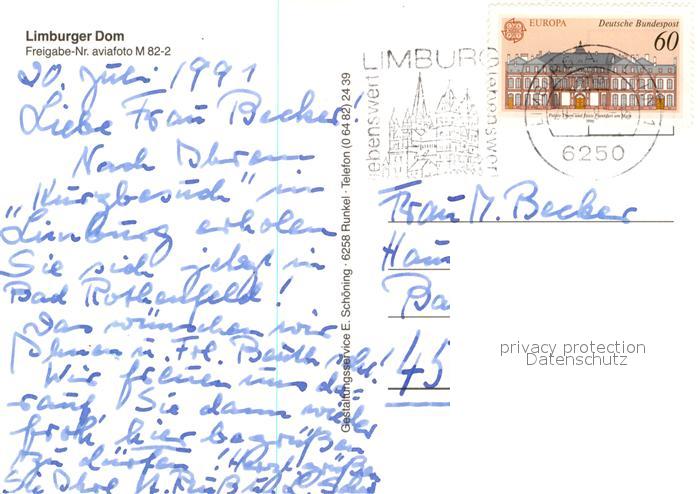 Limburger Dom
Freigabe-Nr. aviafoto M 82-2
20. Juli 1991
Liebe Frau Becker!
Nach Ihrem
"Kurzbesuch" in
Limburg erholen
Sie sich jetzt in
Bad Rothenfeld!
Das wünschen wir
Ihnen u. Frl. sehr!
Wir freuen uns da-
rauf, Sie dann wieder
froh hier begrüßen
zu dürfen! Herzl. grüßen
Sie Ihre
Gestaltungsservice E. Schöning · 6258 Runkel · Telefon (0 64 82) 24 39
LIMBURG
liebenswert
sehenswert
EUROPA
Deutsche Bundespost
60
Palais Thurn und Taxis Frankfurt am Main
1990
6250
Frau M. Becker
Hau
Ba
45
privacy protection
Datenschutz